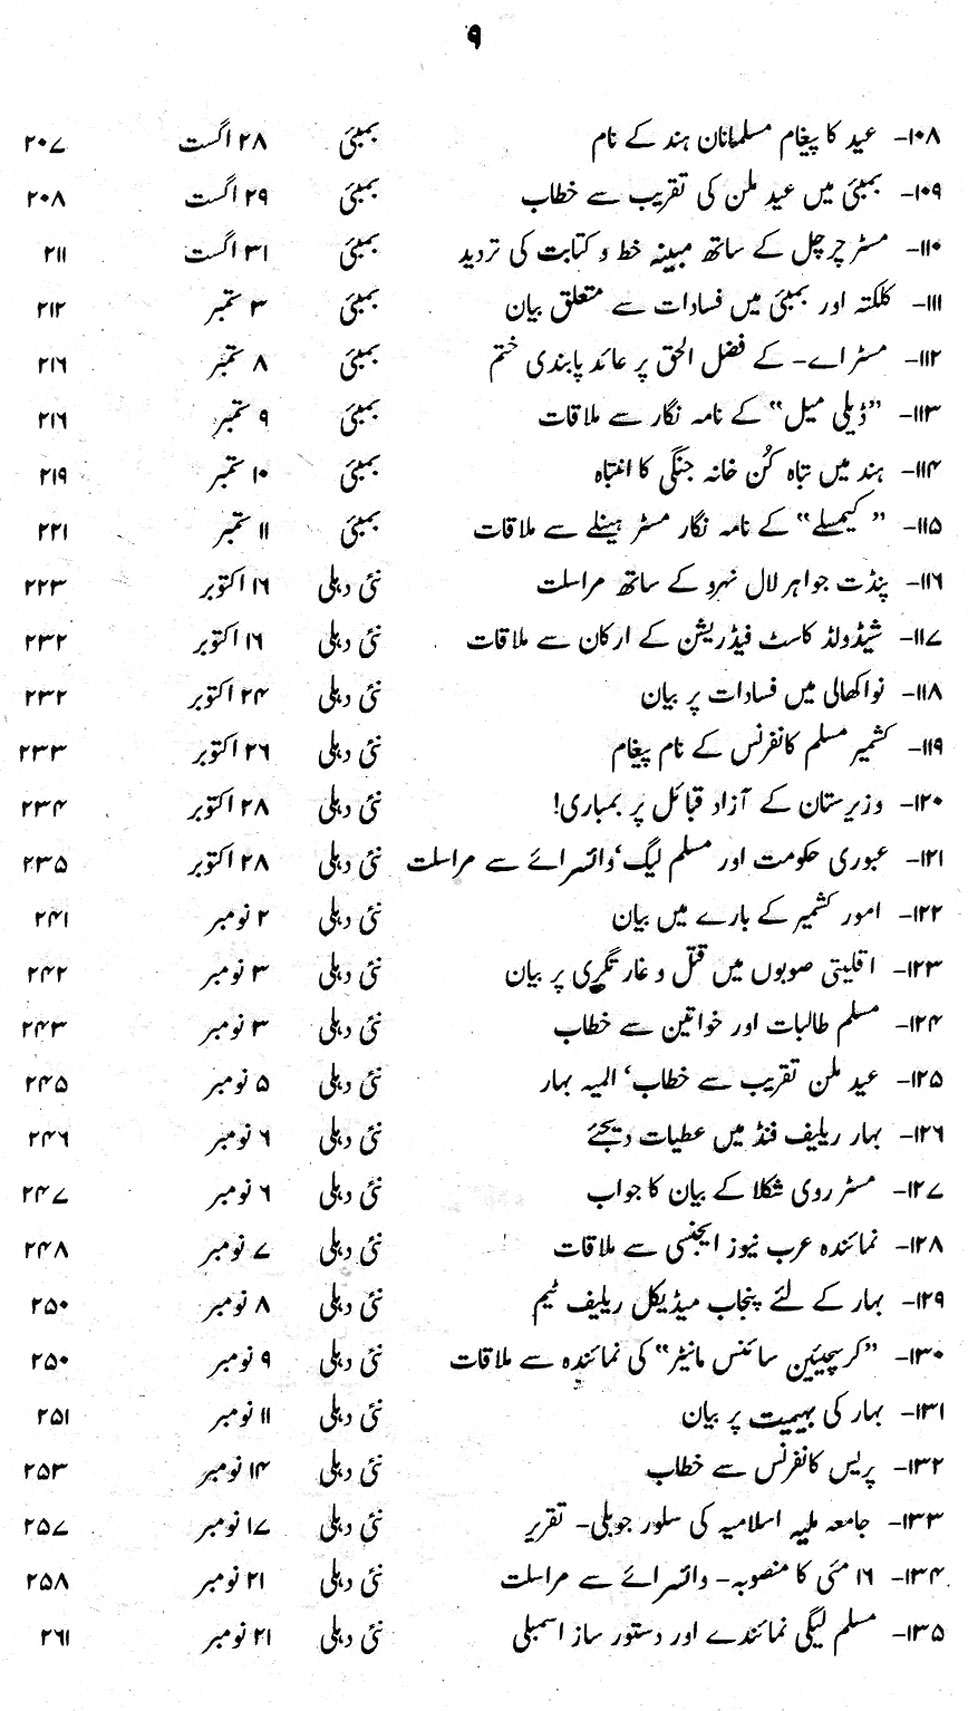 ۹
۱۰۸- عید کا پیغام مسلمانان ہند کے نام بمبئی ۲۸ اگست ۲۰۷
۱۰۹- بمبئی میں عید ملن کی تقریب سے خطاب بمبئی ۲۹ اگست ۲۰۸
۱۱۰- مسٹر چرچل کے ساتھ مبینہ خط و کتابت کی تردید بمبئی ۳۱ اگست ۲۱۱
۱۱۱- کلکتہ اور بمبئی میں فسادات سے متعلق بیان بمبئی ۳ ستمبر ۲۱۲
۱۱۲- مسٹر اے- کے فضل الحق پر عائد پابندی ختم بمبئی ۸ ستمبر ۲۱۶
۱۱۳- ”ڈیلی میل“ کے نامہ نگار سے ملاقات بمبئی ۹ ستمبر ۲۱۶
۱۱۴- ہند میں تباہ کُن خانہ جنگی کا انتباہ بمبئی ۱۰ ستمبر ۲۱۹
۱۱۵- ”کیمسلے“ کے نامہ نگار مسٹر ہینلے سے ملاقات بمبئی ۱۱ ستمبر ۲۲۱
۱۱۶- پنڈت جواہر لال نہرو کے ساتھ مراسلت نئی دہلی ۱۶ اکتوبر ۲۲۳
۱۱۷- شیڈولڈ کاسٹ فیڈریشن کے ارکان سے ملاقات نئی دہلی ۱۶ اکتوبر ۲۳۲
۱۱۸- نواکھالی میں فسادات پر بیان نئی دہلی ۲۴ اکتوبر ۲۳۲
۱۱۹- کشمیر مسلم کانفرنس کے نام پیغام نئی دہلی ۲۶ اکتوبر ۲۳۳
۱۲۰- وزیرستان کے آزاد قبائل پر بمباری! نئی دہلی ۲۸ اکتوبر ۲۳۴
۱۲۱- عبوری حکومت اور مسلم لیگ‘ وائسرائے سے مراسلت نئی دہلی ۲۸ اکتوبر ۲۳۵
۱۲۲- امور کشمیر کے بارے میں بیان نئی دہلی ۲ نومبر ۲۴۱
۱۲۳- اقلیتی صوبوں میں قتل و غارتگری پر بیان نئی دہلی ۳ نومبر ۲۴۲
۱۲۴- مسلم طالبات اور خواتین سے خطاب نئی دہلی ۳ نومبر ۲۴۳
۱۲۵- عید ملن تقریب سے خطاب‘ المیہ بہار نئی دہلی ۵ نومبر ۲۴۵
۱۲۶- بہار ریلیف فنڈ میں عطیات دیجئے نئی دہلی ۶ نومبر ۲۴۶
۱۲۷- مسٹر روی شکلا کے بیان کا جواب نئی دہلی ۶ نومبر ۲۴۷
۱۲۸- نمائندہ عرب نیوز ایجنسی سے ملاقات نئی دہلی ۷ نومبر ۲۴۸
۱۲۹- بہار کے لئے پنجاب میڈیکل ریلیف ٹیم نئی دہلی ۸ نومبر ۲۵۰
۱۳۰- ”کرسچیئین سائنس مانیٹر“ کی نمائندہ سے ملاقات نئی دہلی ۹ نومبر ۲۵۰
۱۳۱- بہار کی بہیمیت پر بیان نئی دہلی ۱۱ نومبر ۲۵۱
۱۳۲- پریس کانفرنس سے خطاب نئی دہلی ۱۴ نومبر ۲۵۳
۱۳۳- جامعہ ملیہ اسلامیہ کی سلور جوبلی- تقریر نئی دہلی ۱۷ نومبر ۲۵۷
۱۳۴- ۱۶ مئی کا منصوبہ- وائسرائے سے مراسلت نئی دہلی ۲۱ نومبر ۲۵۸
۱۳۵- مسلم لیگی نمائندے اور دستور ساز اسمبلی نئی دہلی ۲۱ نومبر ۲۶۱